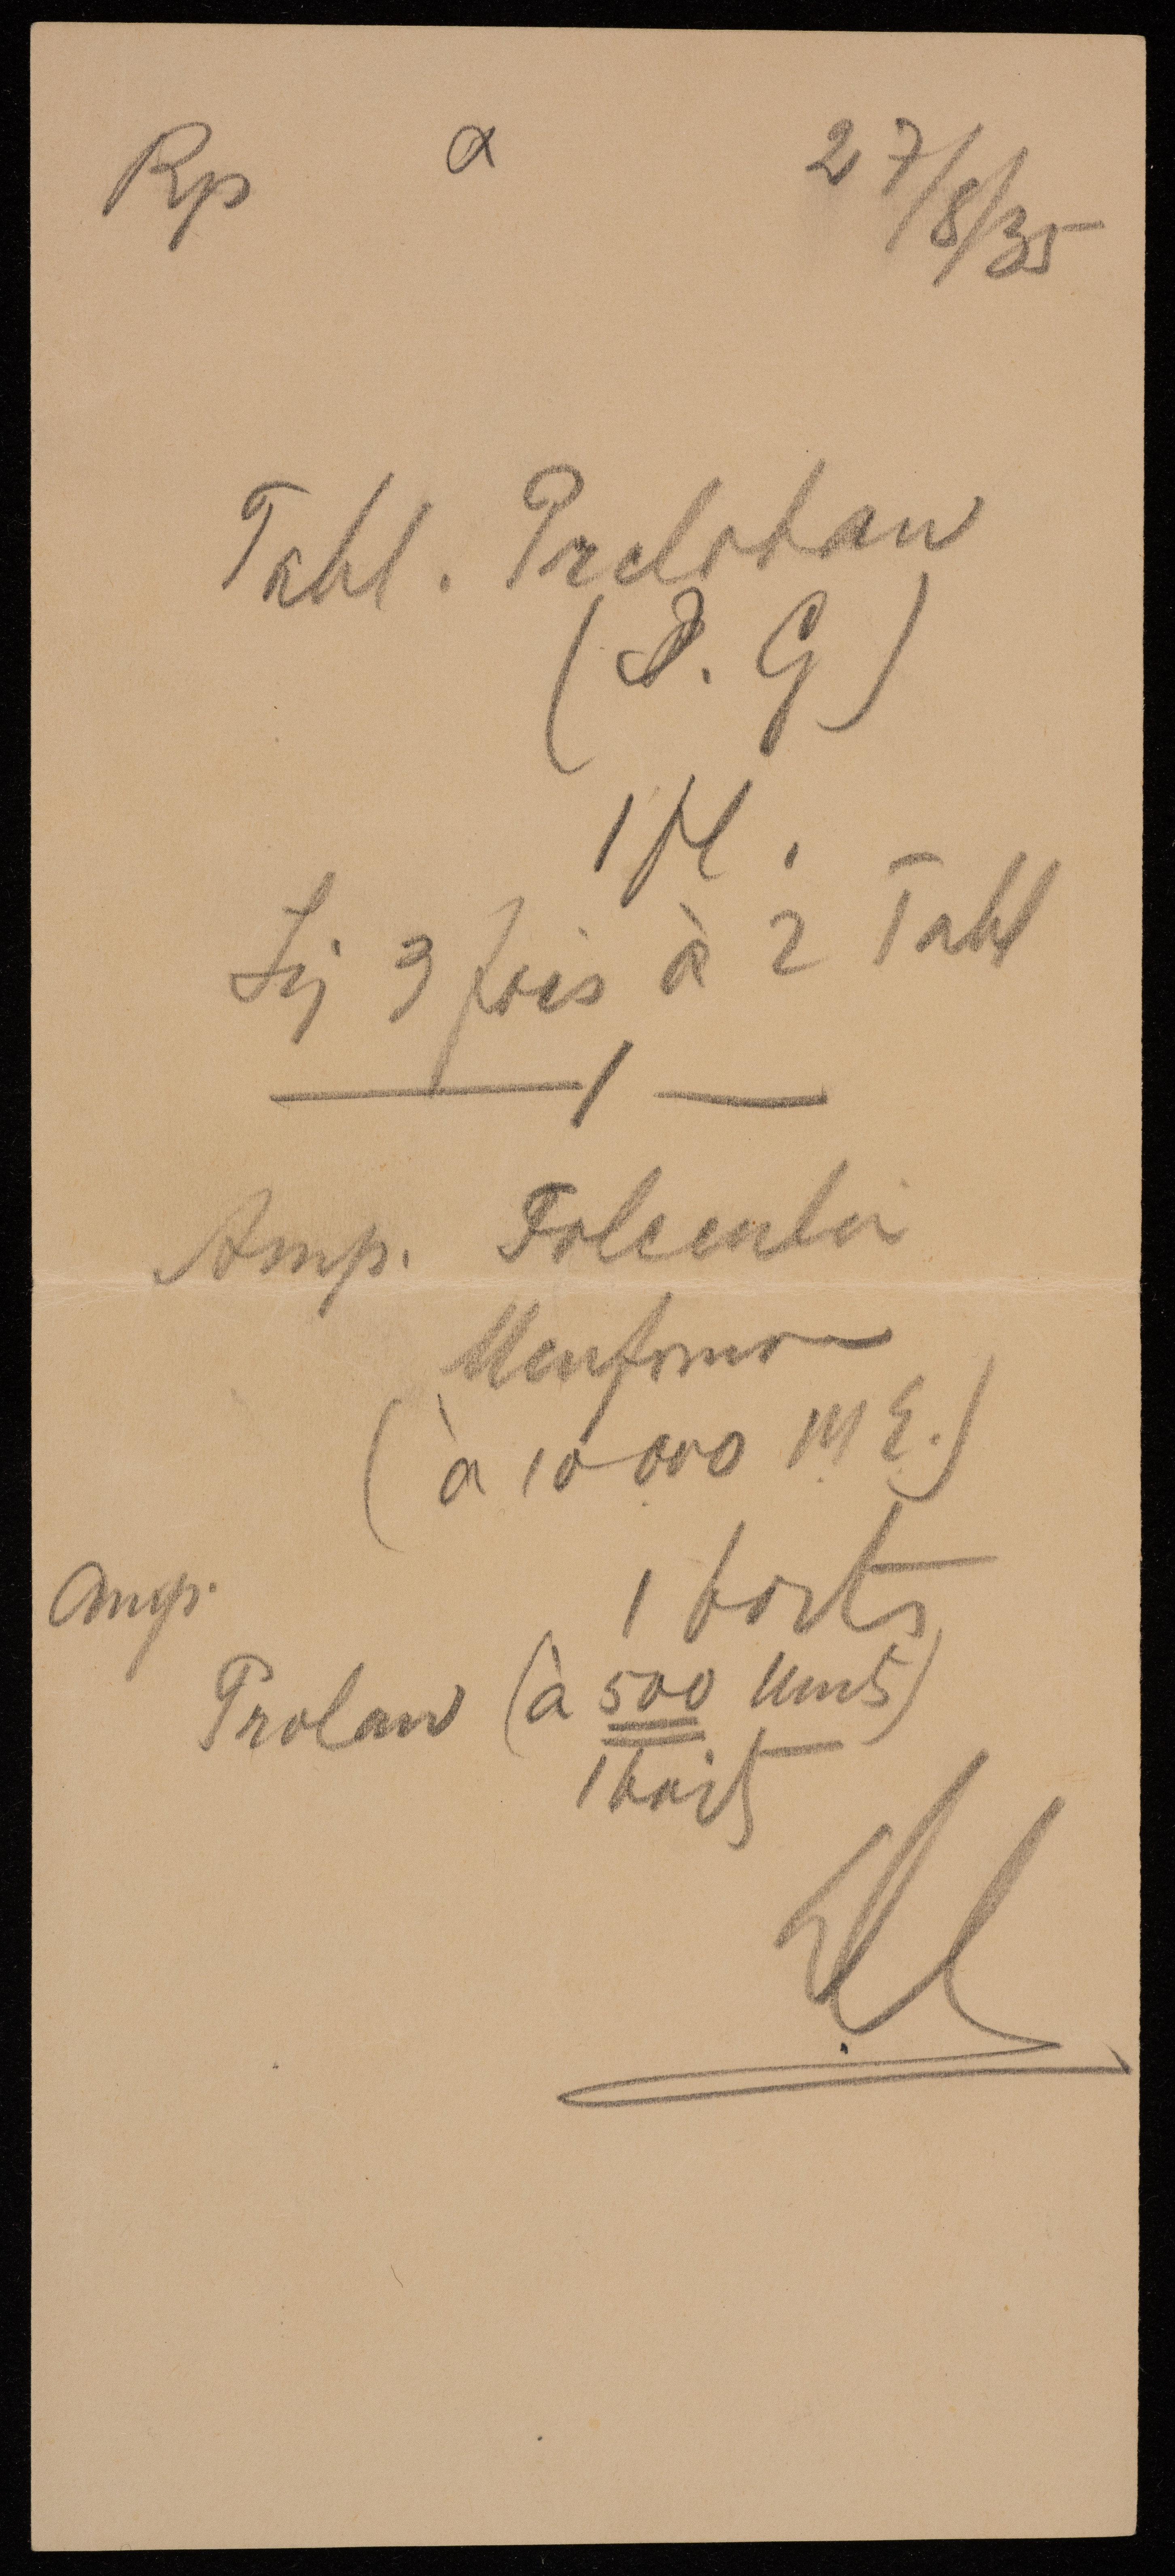 Rp α 27/8/35
Tabl. Preloban
(I. G)
1 fl.
Sig 3 fois à 2 Tabl
1
Amp. Folliculin
Menformon
(à 10 000 M E.)
Amp. 1 boite
Prolan (à 500 Units)
1 boite